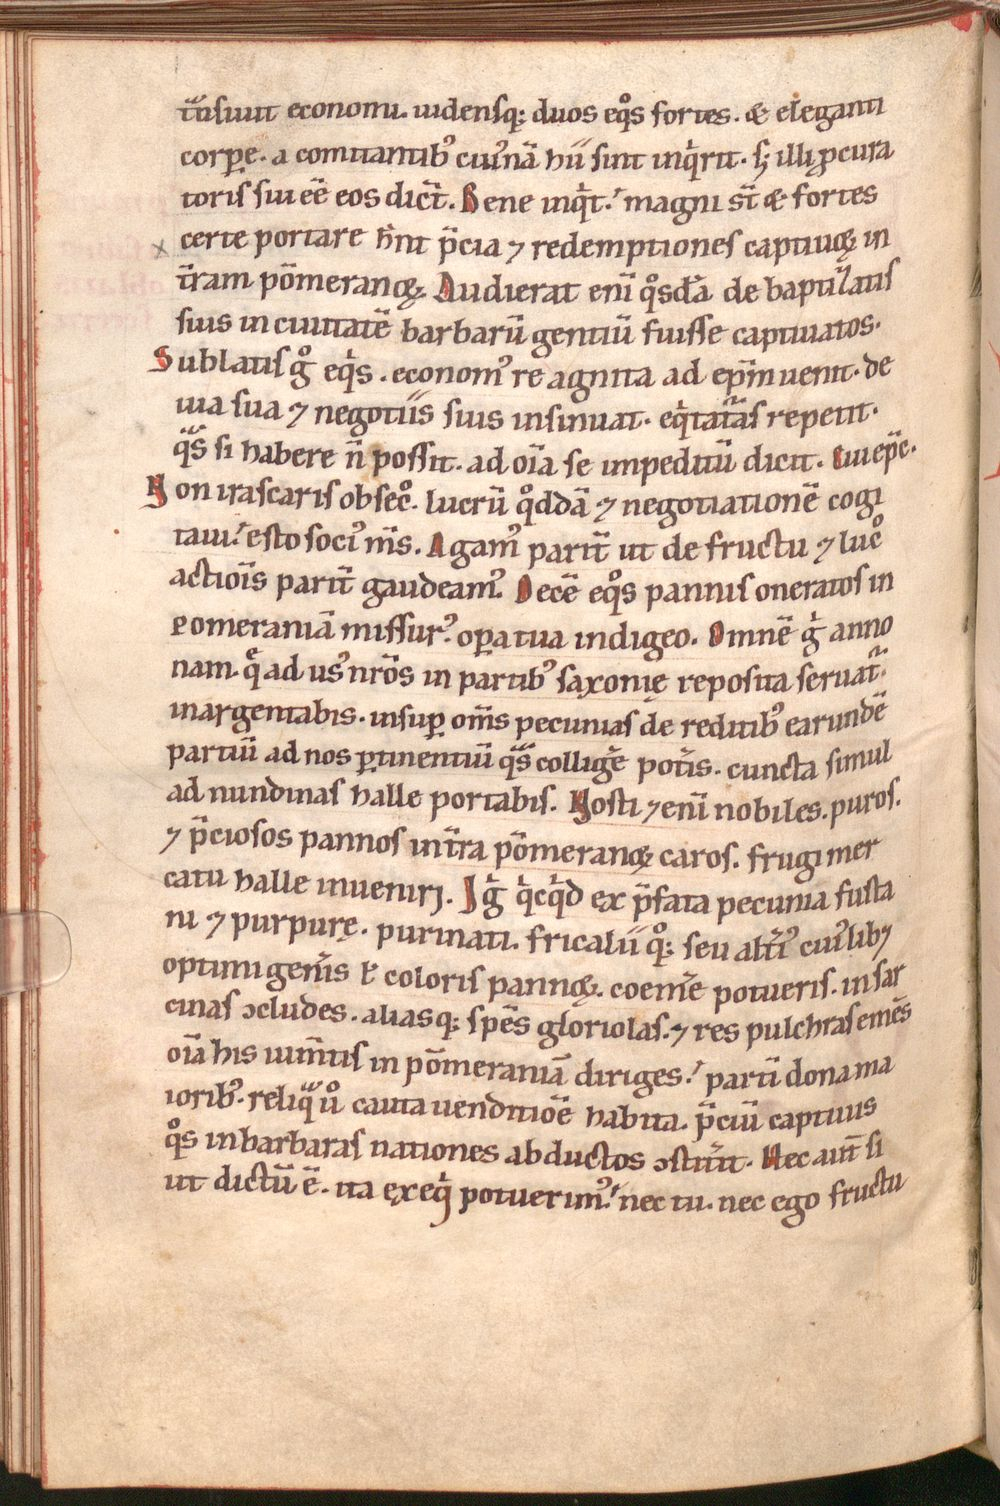 t̄nsiuit economi. uidensq; duos eq̊s fortes. & eleganti
corꝑe. a comitantib᷒ cui᷒nā hii sint inq̇rit. sꝫ illi ꝓcura
toris sui eē eos dic̄t. Bene inq̇t. magni st̄ & fortes
certe portare h̄nt p̄cia ⁊ redemptiones captiuoꝝ in
t̄ram pōmeranoꝝ. Audierat eni̅ q̊sdā de baptizatis
suis in ciuitatē barbarū gentiū fuisse captiuatos.
Sublatis g̊ eq̇s. economʼ re agnita ad ep̄m uenit. de
uia sua ⁊ negotiis suis insinuat. eq̇taturas repetit.
qᷓs si habere n̄ possit. ad oīa se impeditū dicit. Cui ep̄c.
Non irascaris obsec̊. lucrū q̊ddā ⁊ negotiationē cogi
taui. esto sociʼ m̄s. Agamʼ parit̄ ut de fructu ⁊ luc̊
actiōis parit̄ gaudeamʼ. Decē eq̊s pannis oneratos in
Pomeraniā missurʼ. oꝑa tua indigeo. Omnē g̊ anno
nam. q̄ ad usʼ nr̄os in partibʼ saxonię reposita seruat᷑.
inargentabis. insuꝑ om̄s pecunias de reditibʼ earundē
partiū ad nos ꝑtinentiū qᷓs colliḡe pot̄is. cuncta simul
ad nundinas halle portabis. Nosti ⁊eni̅ nobiles. puros.
⁊ p̄ciosos pannos int̄ra pōmeranoꝝ caros. frugi mer
catu halle inueniri. Ig̊ q̇cq̇d ex p̄fata pecunia fusta
ni ⁊ purpurę. purinati. fricaliiq̊; seu alt̄iʼ cuiʼlibꝫ
optimi gen̄is ł coloris pannoꝝ. coem̄e potueris. in sar
cinas ɔcludes. aliasq; spēs gloriolas. ⁊ res pulchras emēs
oīa his iūm̄tis in pōmeraniā diriges. partī dona ma
ioribʼ. reliqᷓ ů cauta uenditiōe habita. p̄ciū captiuis
q̊s in barbaras nationes abductos ɔstit̄it. Nec aut̄ si
ut dictū ē. ita exeq̇ potuerimʼ. nec tu. nec ego fructu